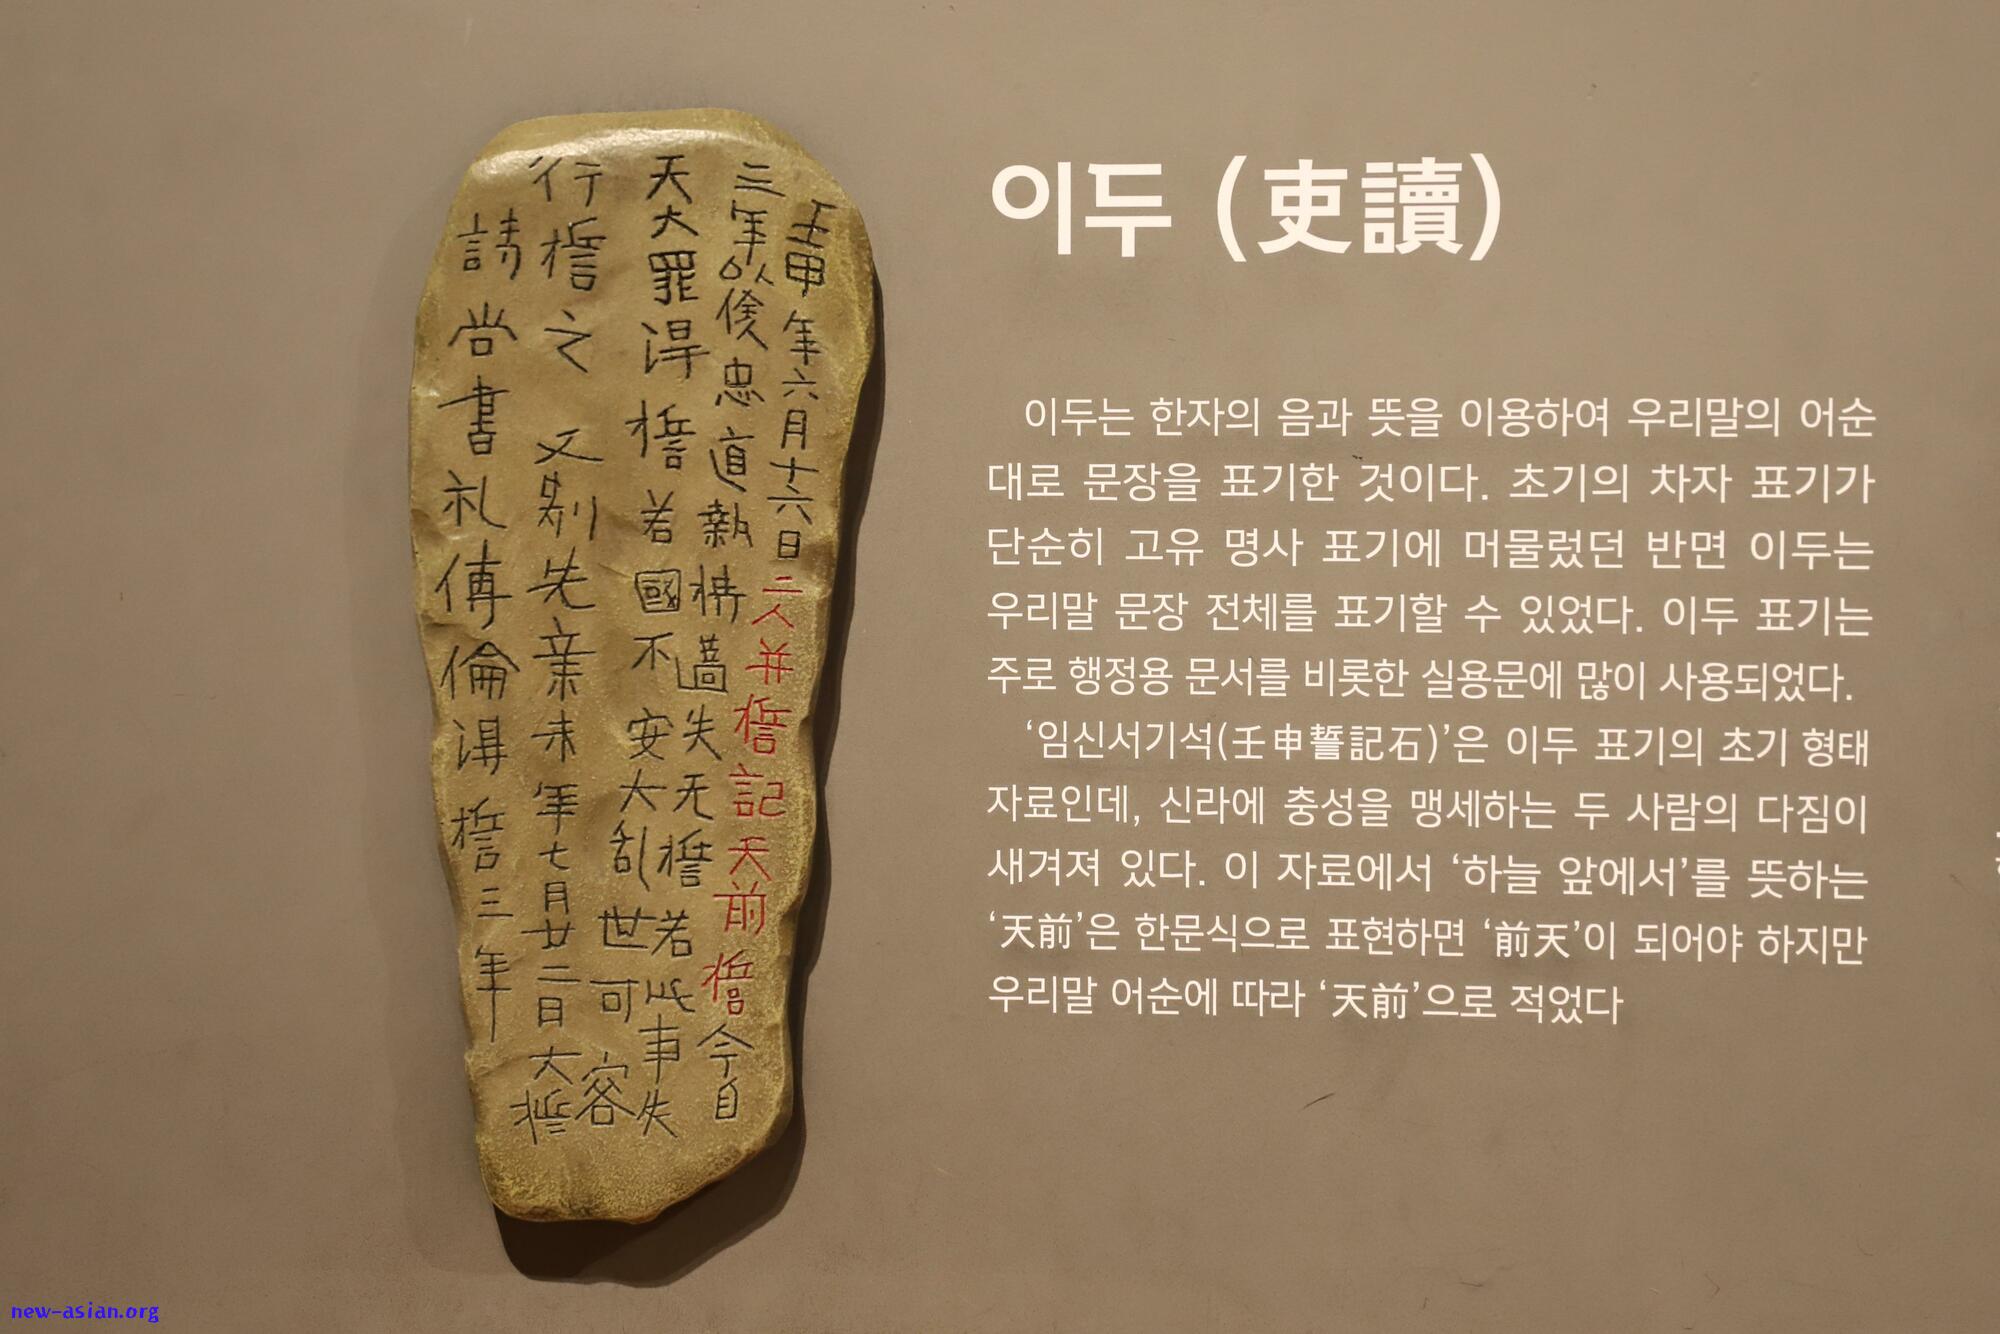 壬申年六月十六日二人并誓記天前誓今自
三年以後忠道執持過失无誓若此事失
天大罪淂誓若國不安大乱世可容
行誓之 又別先辛未年七月廿二日大誓
詩尚書礼傳倫淂誓三年
이두 (吏讀)
이두는 한자의 음과 뜻을 이용하여 우리말의 어순
대로 문장을 표기한 것이다. 초기의 차자 표기가
단순히 고유 명사 표기에 머물렀던 반면 이두는
우리말 문장 전체를 표기할 수 있었다. 이두 표기는
주로 행정용 문서를 비롯한 실용문에 많이 사용되었다.
‘임신서기석(壬申誓記石)’은 이두 표기의 초기 형태
자료인데, 신라에 충성을 맹세하는 두 사람의 다짐이
새겨져 있다. 이 자료에서 ‘하늘 앞에서’를 뜻하는
‘天前’은 한문식으로 표현하면 ‘前天’이 되어야 하지만
우리말 어순에 따라 ‘天前’으로 적었다
new-asian.org